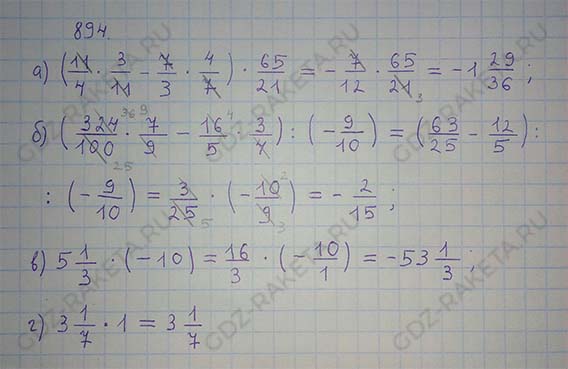 894.
а) (11/4 · 3/11 - 7/3 · 4/7) · 65/21 = - 7/12 · 65/21 3 = -1 29/36;
б) (324/100 36 9 25 · 7/9 - 16/5 4 · 3/4) : (- 9/10) = (63/25 - 12/5) :
: (- 9/10) = 3/25 5 · (- 10/9 2 3) = - 2/15;
в) 5 1/3 · (-10) = 16/3 · (- 10/1) = -53 1/3;
г) 3 1/7 · 1 = 3 1/7
GDZ-RAKETA.RU
GDZ-RAKETA.RU
GDZ-RAKETA.RU
GDZ-RAKETA.RU
GDZ-RAKETA.RU
GDZ-RAKETA.RU